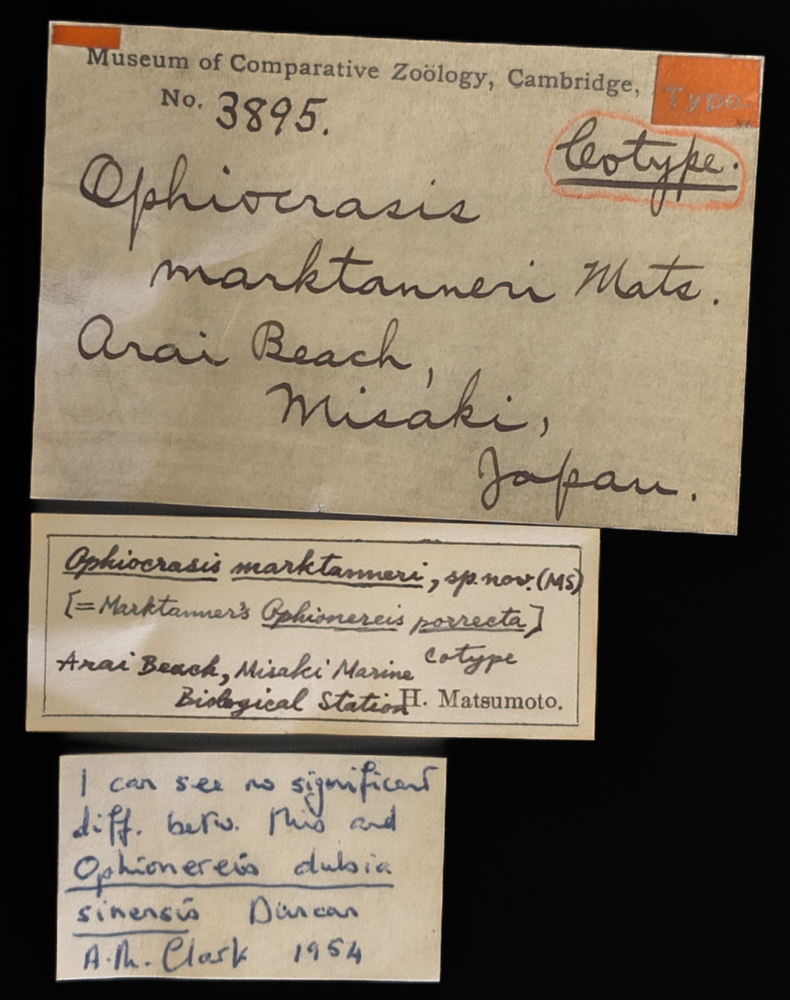 Museum of Comparative Zoölogy, Cambridge,
Type.
No. 3895.
Cotype.
Ophiocrasis
marktanneri Mats.
Arai Beach,
Misaki,
Japan.
Ophiocrasis marktanneri, sp. nov. (MS)
[= Marktanner's Ophionereis porrecta]
Cotype
Arai Beach, Misaki Marine
Biological Station
H. Matsumoto.
I can see no significant
diff. betw. this and
Ophionereis dubia
sinensis Duncan
A.M. Clark 1954